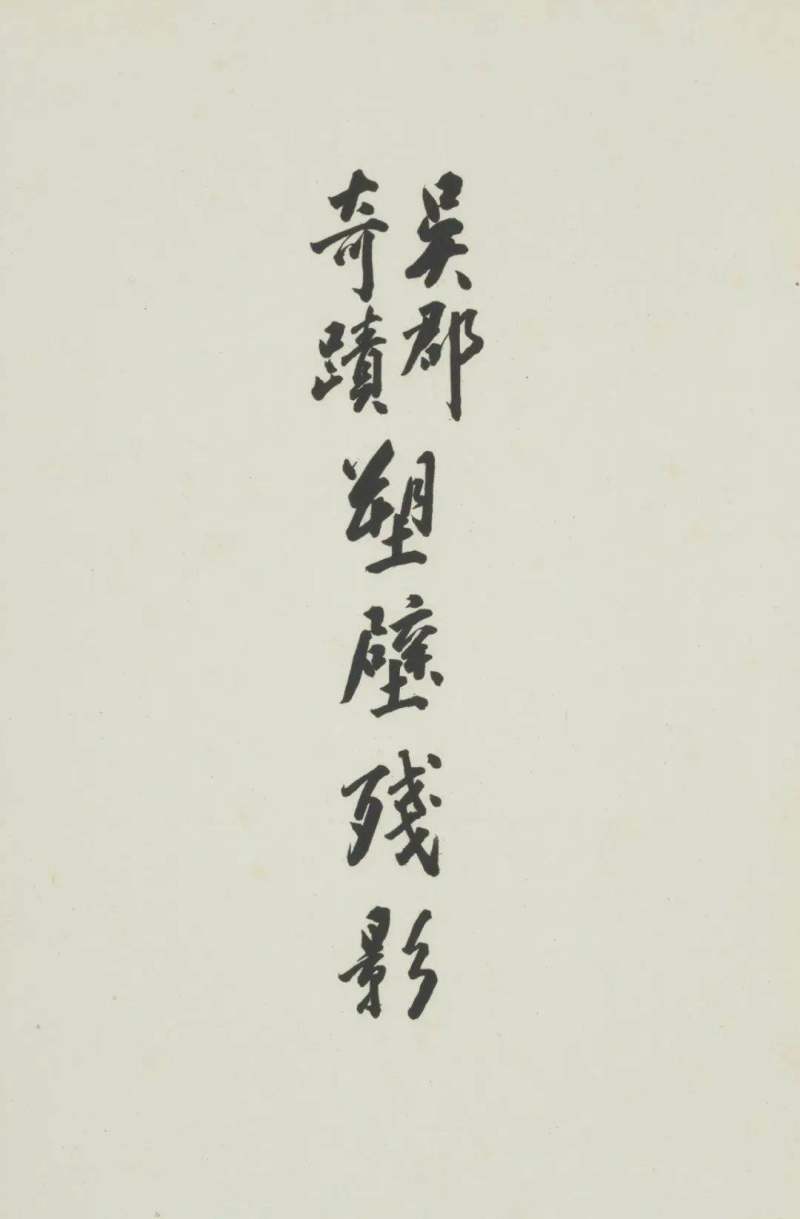 吳郡
奇蹟
塑壁残影